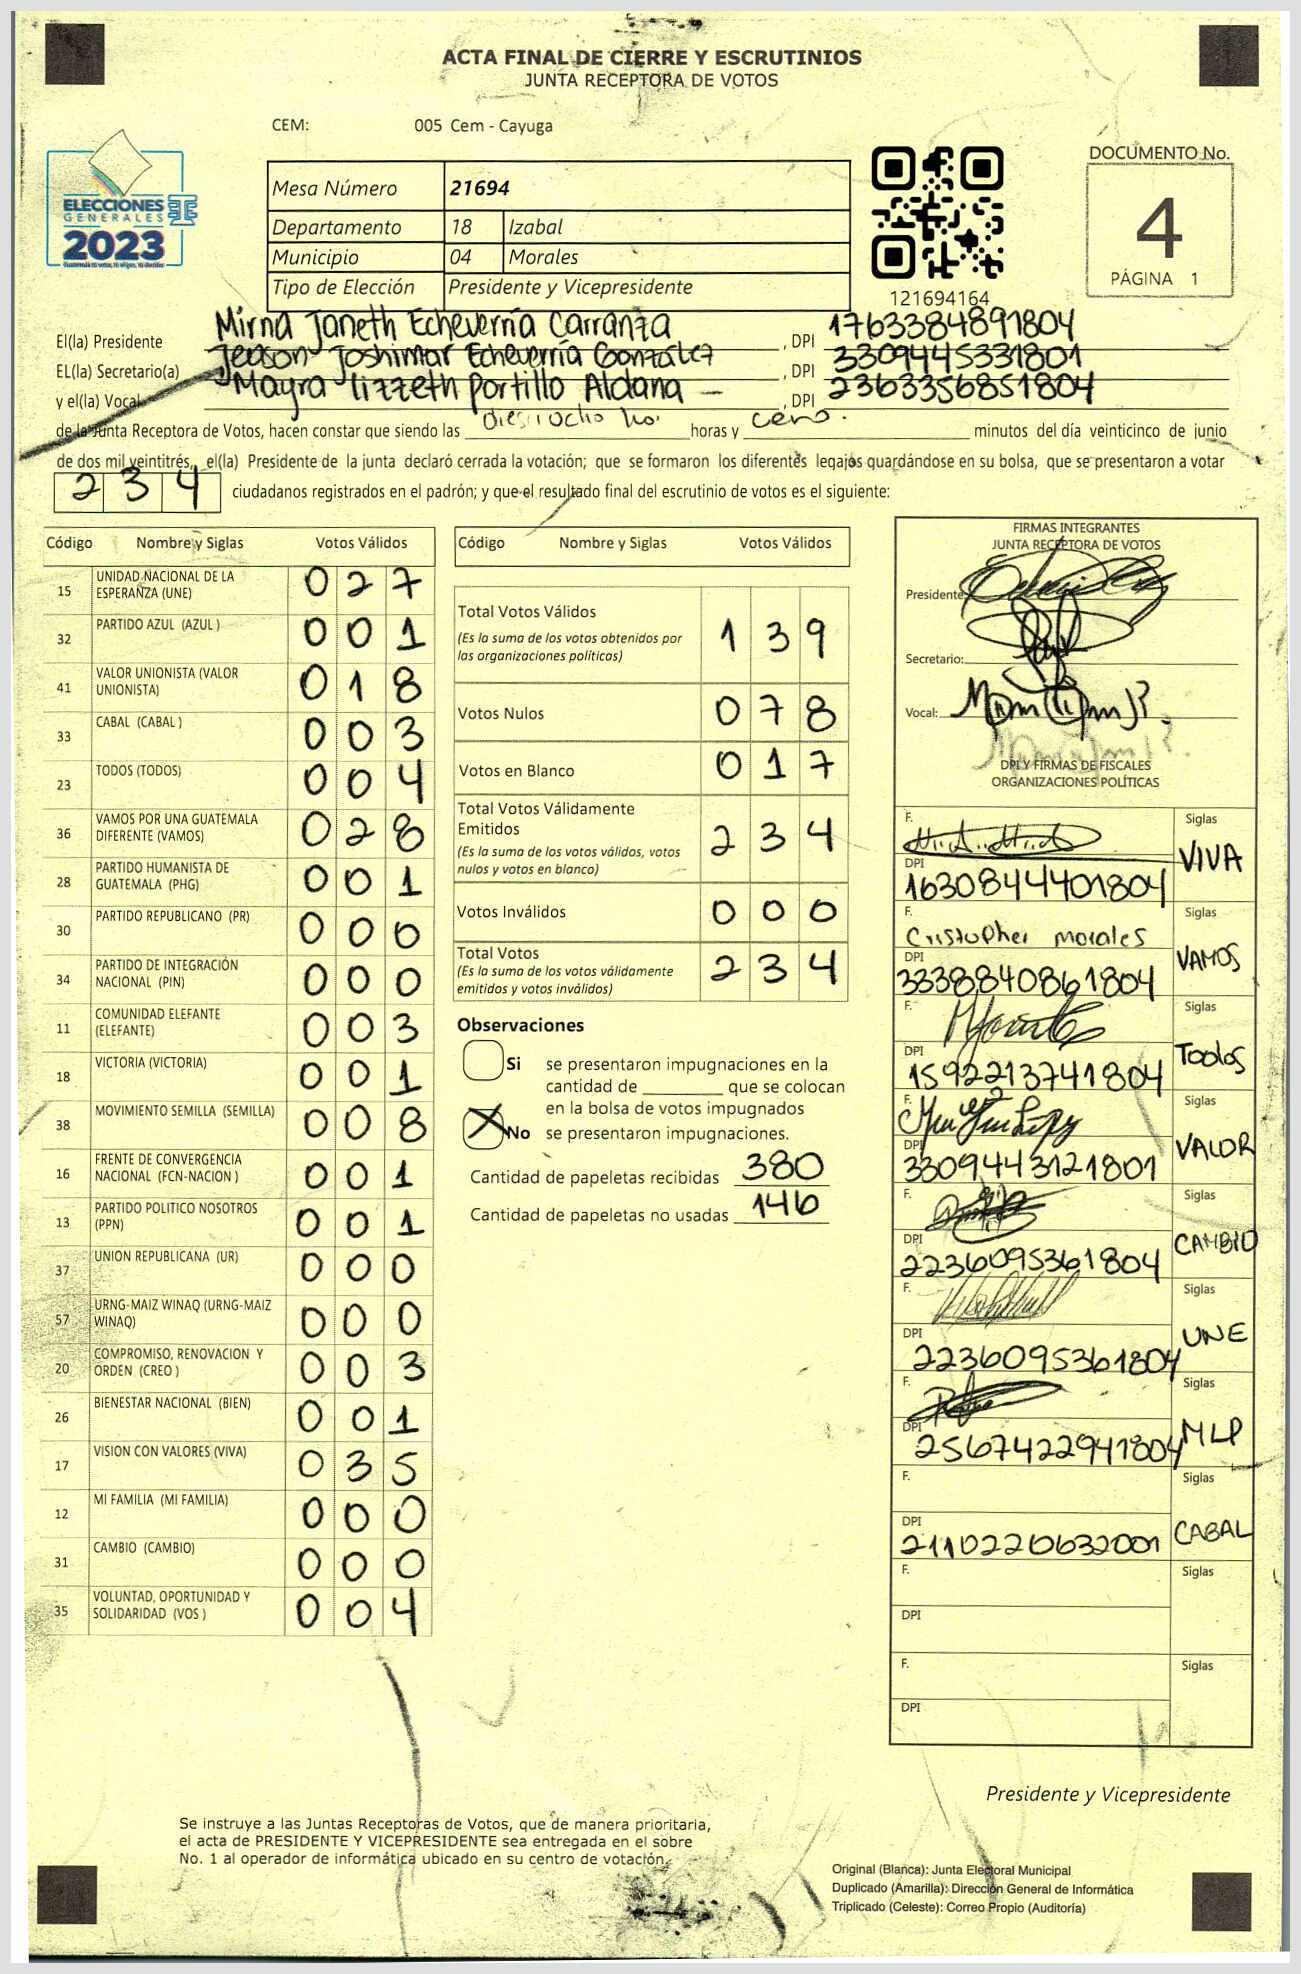 ACTA FINAL DE CIERRE Y ESCRUTINIOS
JUNTA RECEPTORA DE VOTOS
CEM: 005 Cem - Cayuga
ELECCIONES
GENERALES
2023
Mesa Número 21694
Departamento 18 Izabal
Municipio 04 Morales
Tipo de Elección Presidente y Vicepresidente
121694164
DOCUMENTO No.
4
PÁGINA 1
El(la) Presidente Mirna Janeth Echeverría Carranza , DPI 1763384891804
EL(la) Secretario(a) Jeason Joshimar Echeverría González , DPI 3309445331801
y el(la) Vocal Mayra lizzeth Portillo Aldana , DPI 2363356851804
de la Junta Receptora de Votos, hacen constar que siendo las diesiocho ho. horas y cero. minutos del día veinticinco de junio
de dos mil veintitrés, el(la) Presidente de la junta declaró cerrada la votación; que se formaron los diferentes legajos quardándose en su bolsa, que se presentaron a votar
234 ciudadanos registrados en el padrón; y que el resultado final del escrutinio de votos es el siguiente:
Código Nombre y Siglas Votos Válidos
15 UNIDAD NACIONAL DE LA ESPERANZA (UNE) 027
32 PARTIDO AZUL (AZUL ) 001
41 VALOR UNIONISTA (VALOR UNIONISTA) 018
33 CABAL (CABAL ) 003
23 TODOS (TODOS) 004
36 VAMOS POR UNA GUATEMALA DIFERENTE (VAMOS) 028
28 PARTIDO HUMANISTA DE GUATEMALA (PHG) 001
30 PARTIDO REPUBLICANO (PR) 000
34 PARTIDO DE INTEGRACIÓN NACIONAL (PIN) 000
11 COMUNIDAD ELEFANTE (ELEFANTE) 003
18 VICTORIA (VICTORIA) 001
38 MOVIMIENTO SEMILLA (SEMILLA) 008
16 FRENTE DE CONVERGENCIA NACIONAL (FCN-NACION ) 001
13 PARTIDO POLITICO NOSOTROS (PPN) 001
37 UNION REPUBLICANA (UR) 000
57 URNG-MAIZ WINAQ (URNG-MAIZ WINAQ) 000
20 COMPROMISO, RENOVACION Y ORDEN (CREO ) 003
26 BIENESTAR NACIONAL (BIEN) 001
17 VISION CON VALORES (VIVA) 035
12 MI FAMILIA (MI FAMILIA) 000
31 CAMBIO (CAMBIO) 000
35 VOLUNTAD, OPORTUNIDAD Y SOLIDARIDAD (VOS ) 004
Código Nombre y Siglas Votos Válidos
Total Votos Válidos 139
(Es la suma de los votos obtenidos por
las organizaciones políticas)
Votos Nulos 078
Votos en Blanco 017
Total Votos Válidamente
Emitidos 234
(Es la suma de los votos válidos, votos
nulos y votos en blanco)
Votos Inválidos 000
Total Votos 234
(Es la suma de los votos válidamente
emitidos y votos inválidos)
Observaciones
Si se presentaron impugnaciones en la
cantidad de ________ que se colocan
en la bolsa de votos impugnados
No se presentaron impugnaciones.
Cantidad de papeletas recibidas 380
Cantidad de papeletas no usadas 146
FIRMAS INTEGRANTES
JUNTA RECEPTORA DE VOTOS
Presidente:
Secretario:
Vocal:
DPI Y FIRMAS DE FISCALES
ORGANIZACIONES POLÍTICAS
F. Siglas
VIVA
DPI
1630844401804
F. Siglas
Cristopher morales VAMOS
DPI
3338840861804
F. Siglas
Todos
DPI
1592213741804
F. Siglas
VALOR
DPI
3309443121801
F. Siglas
CAMBIO
DPI
2236095361804
F. Siglas
UNE
DPI
2236095361804
F. Siglas
MLP
DPI
2567422941804
F. Siglas
CABAL
DPI
2110220632001
F. Siglas
DPI
F. Siglas
DPI
Presidente y Vicepresidente
Se instruye a las Juntas Receptoras de Votos, que de manera prioritaria,
el acta de PRESIDENTE Y VICEPRESIDENTE sea entregada en el sobre
No. 1 al operador de informática ubicado en su centro de votación.
Original (Blanca): Junta Electoral Municipal
Duplicado (Amarilla): Dirección General de Informática
Triplicado (Celeste): Correo Propio (Auditoría)